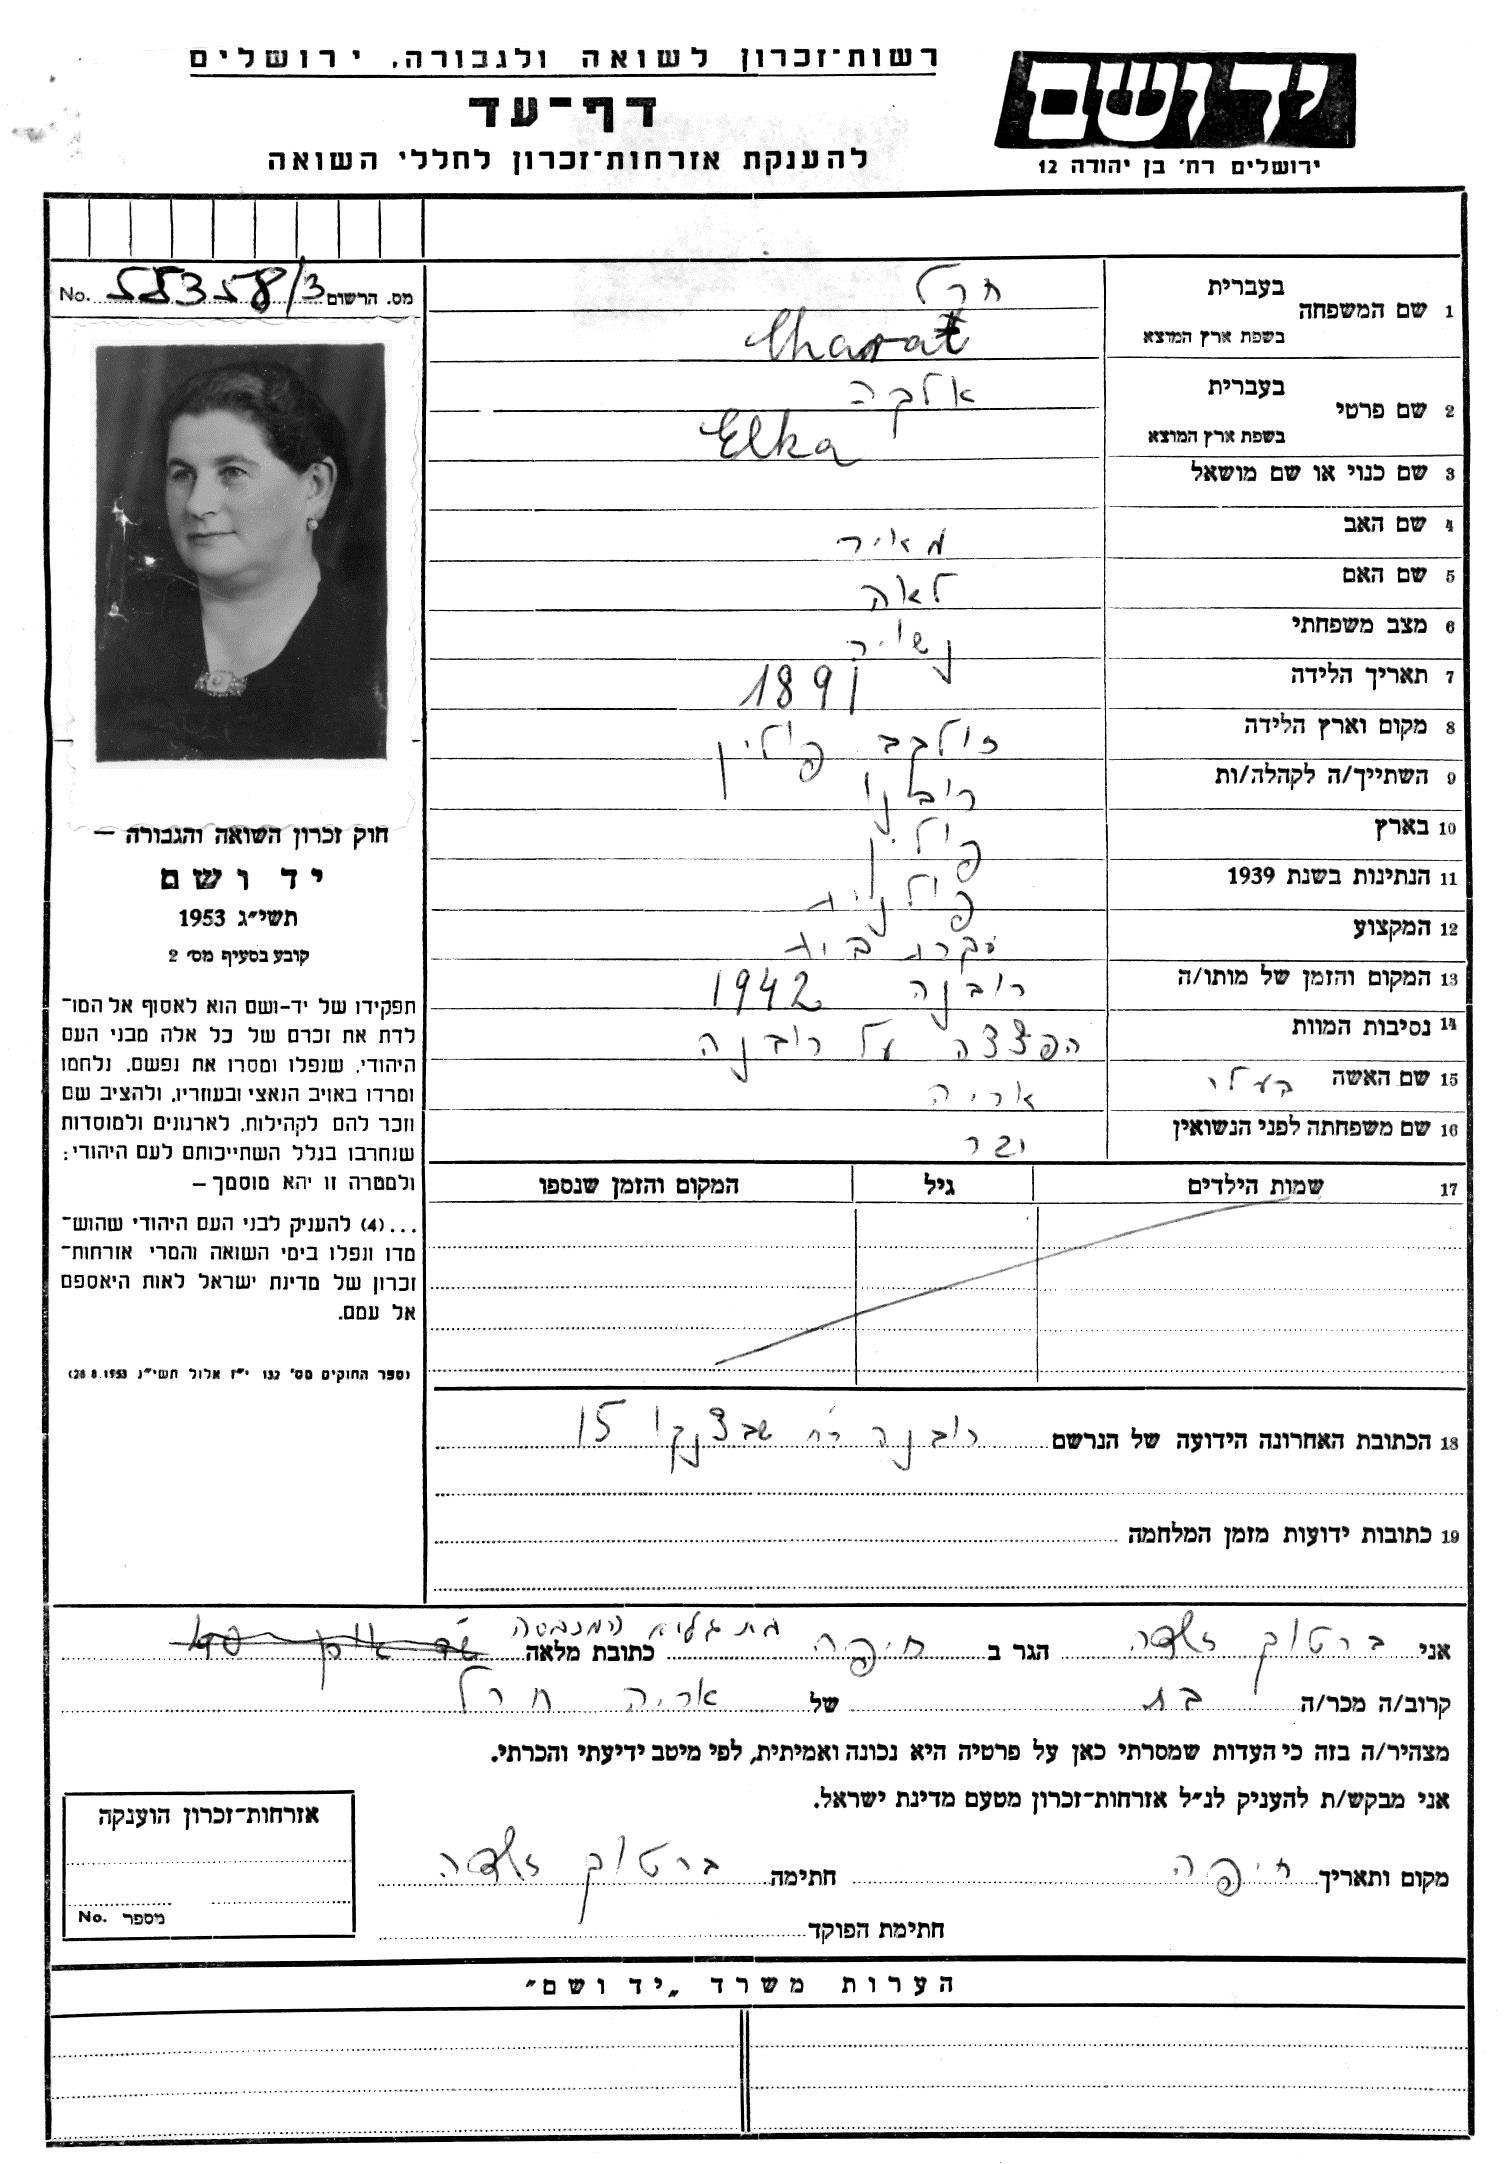 רשות־זכרון לשואה ולגבורה, ירושלים
דף־עד
להענקת אזרחות־זכרון לחללי השואה
יד ושם
ירושלים רח׳ בן יהודה 12
No. 55358/3 מס. הרשום
1 שם המשפחה
בעברית חרל
בשפת ארץ המוצא
2 שם פרטי
בעברית אלקה
בשפת ארץ המוצא Elka
3 שם כנוי או שם מושאל
4 שם האב מאיר
5 שם האם לאה
6 מצב משפחתי נשויה
7 תאריך הלידה 1891
8 מקום וארץ הלידה פולין
9 השתייך/ה לקהלה/ות רובנו
10 בארץ פולין
11 הנתינות בשנת 1939 פולנית
12 המקצוע עקרת בית
13 המקום והזמן של מותו/ה רובנה 1942
14 נסיבות המוות הפצצה על רובנה
15 שם האשה בעלי אריה
16 שם משפחתה לפני הנשואין
17 שמות הילדים גיל המקום והזמן שנספו
18 הכתובת האחרונה הידועה של הנרשם רובנה רח׳ 15
19 כתובות ידועות מזמן המלחמה
חוק זכרון השואה והגבורה —
יד ושם
תשי״ג 1953
קובע בסעיף מס׳ 2
תפקידו של יד-ושם הוא לאסוף אל המו־
לדת את זכרם של כל אלה מבני העם
היהודי, שנפלו ומסרו את נפשם, נלחמו
ומרדו באויב הנאצי ובעוזריו, ולהציב שם
וזכר להם לקהילות, לארגונים ולמוסדות
שנחרבו בגלל השתייכותם לעם היהודי;
ולמטרה זו יהא מוסמך —
...(4) להעניק לבני העם היהודי שהוש־
מדו ונפלו בימי השואה והמרי אזרחות־
זכרון של מדינת ישראל לאות היאספם
אל עמם.
(ספר החוקים מס׳ 132 י״ז אלול תשי״ג 28.8.1953)
אני ברטוק זלדה הגר ב חיפה כתובת מלאה
קרוב/ה מכר/ה בת של אריה חרל
מצהיר/ה בזה כי העדות שמסרתי כאן על פרטיה היא נכונה ואמיתית, לפי מיטב ידיעתי והכרתי.
אני מבקש/ת להעניק לנ״ל אזרחות־זכרון מטעם מדינת ישראל.
מקום ותאריך חיפה חתימה ברטוק זלדה
חתימת הפוקד
אזרחות־זכרון הוענקה
No. מספר
הערות משרד „יד ושם״